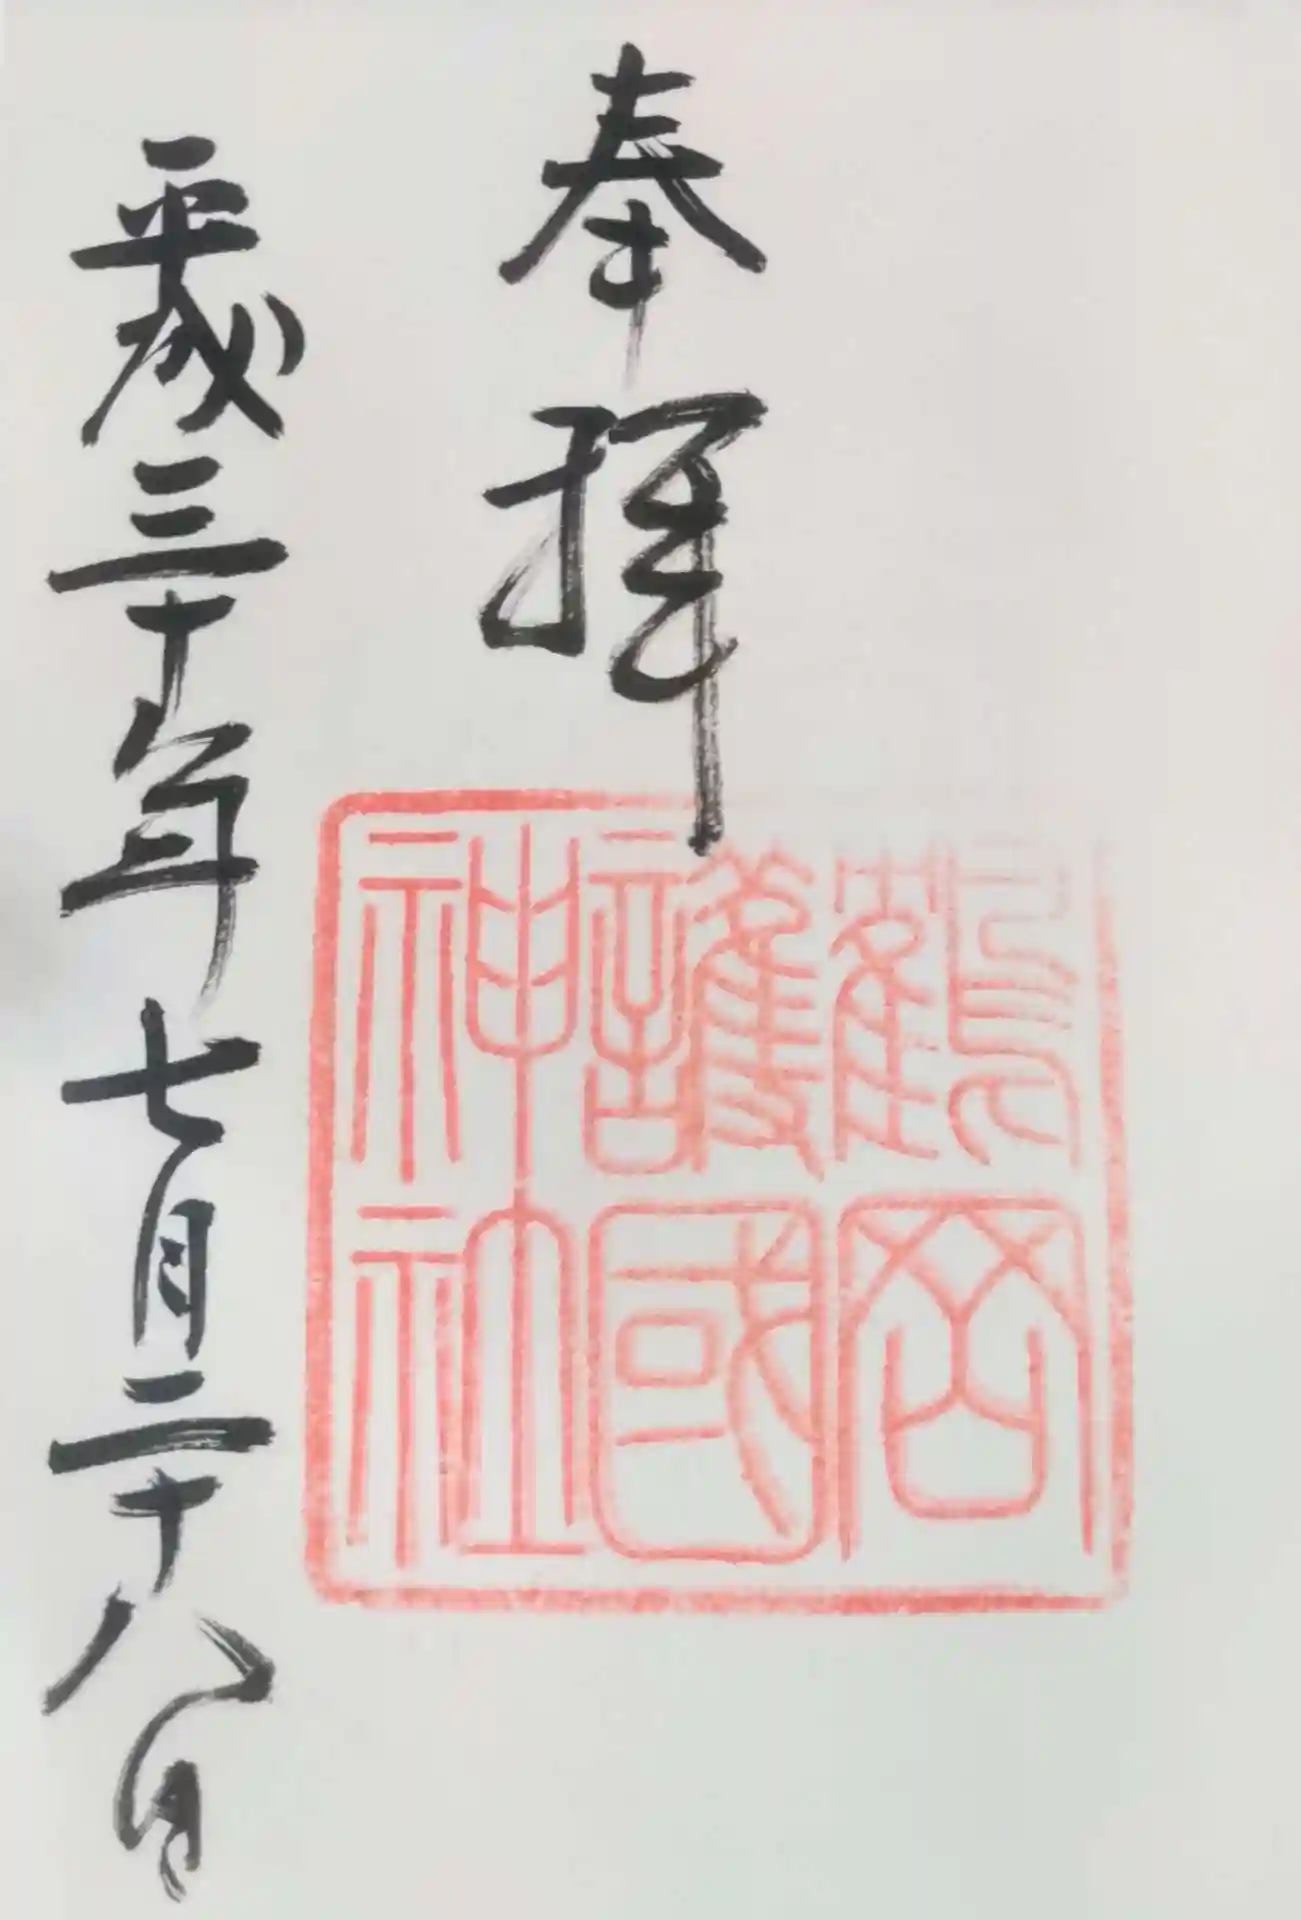 奉拝
鶴岡
護國
神社
平成三十年七月二十八日